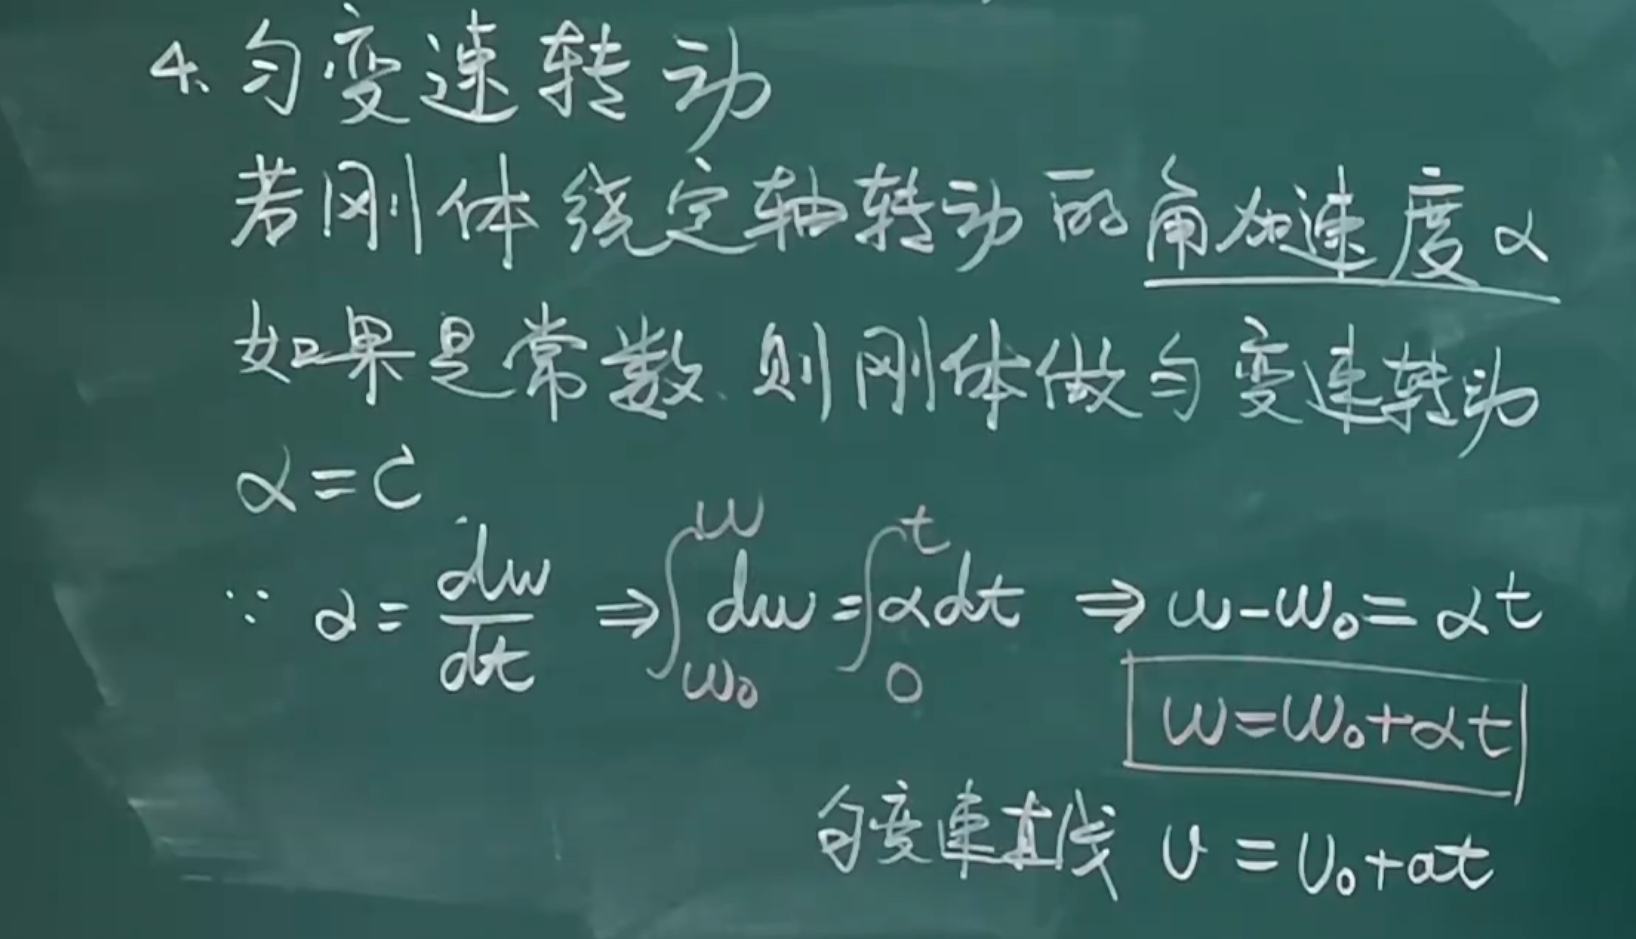 4. 匀变速转动
若刚体绕定轴转动的角加速度α
如果是常数、则刚体做匀变速转动
α=C
∵ α = dω/dt ⇒ ∫_{ω₀}^{ω} dω = ∫_{0}^{t} αdt ⇒ ω-ω₀ = αt
ω=ω₀+αt
匀变速直线 υ = υ₀+at